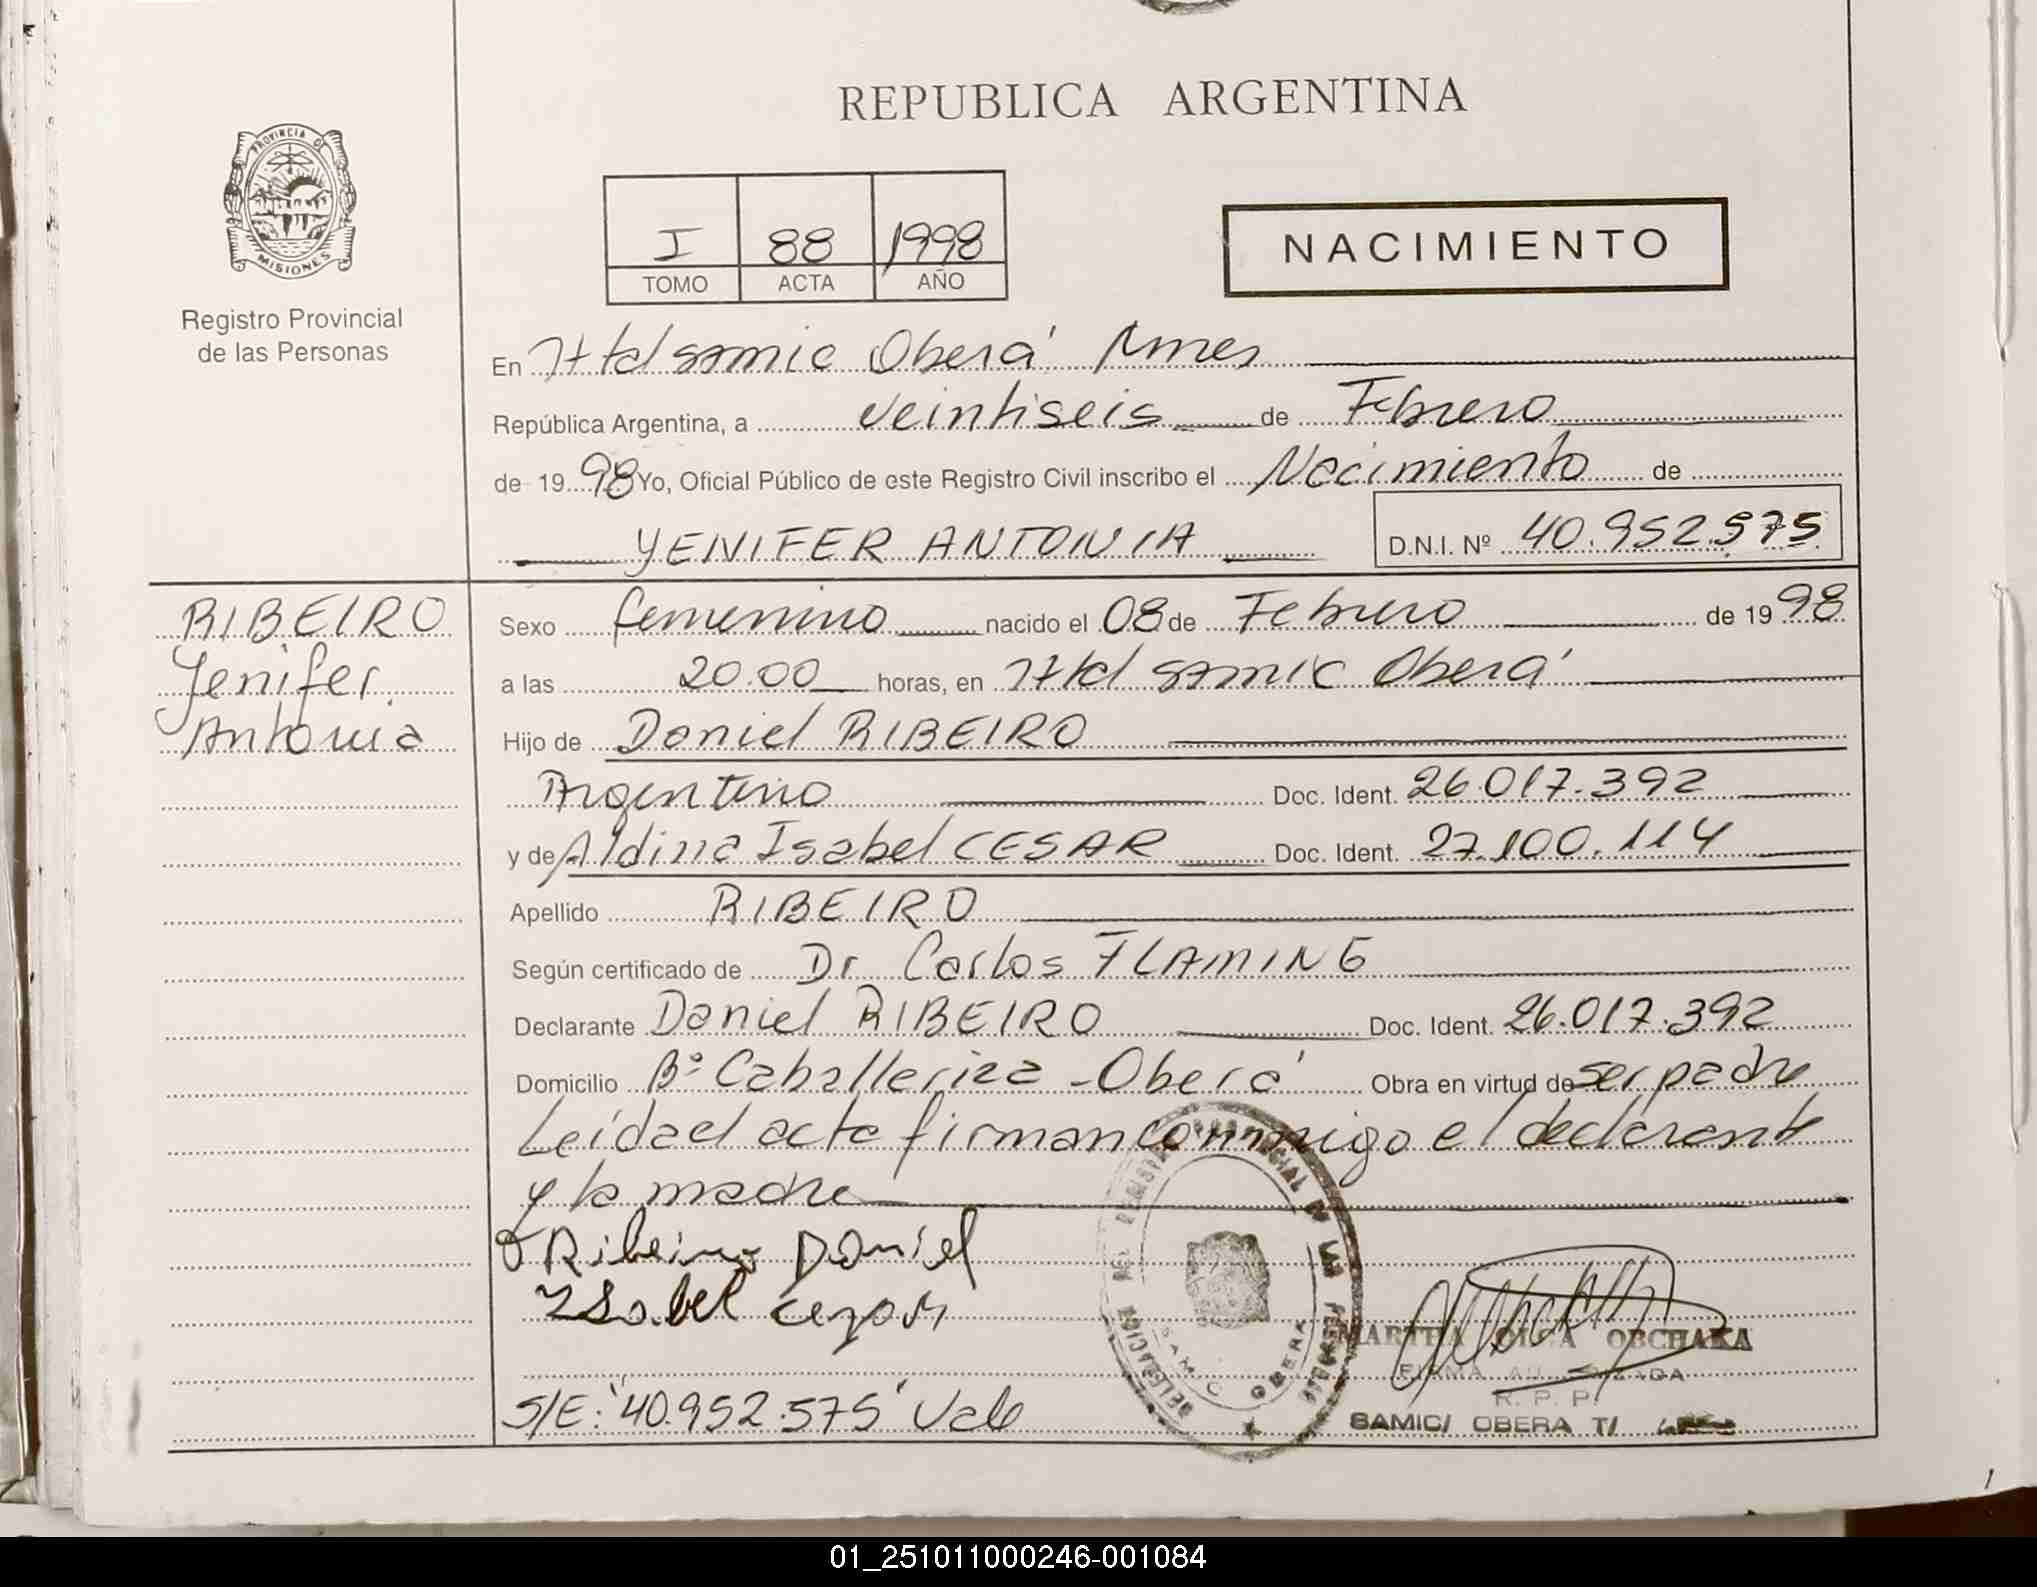 REPUBLICA ARGENTINA
PROVINCIA DE
MISIONES
Registro Provincial
de las Personas
I 88 1998
TOMO ACTA AÑO
NACIMIENTO
En Htal samic Oberá Mnes
República Argentina, a veintiseis de Febrero
de 1998 Yo, Oficial Público de este Registro Civil inscribo el Nacimiento de
YENIFER ANTONIA D.N.I. Nº 40.952.575
RIBEIRO
Yenifer
Antonia
Sexo femenino nacido el 08 de Febrero de 1998
a las 20.00 horas, en Htal samic Oberá
Hijo de Daniel RIBEIRO
Argentino Doc. Ident. 26.017.392
y de Aldina Isabel CESAR Doc. Ident. 27.100.114
Apellido RIBEIRO
Según certificado de Dr Carlos FLAMING
Declarante Daniel RIBEIRO Doc. Ident. 26.017.392
Domicilio Bº Caballeriza - Oberá Obra en virtud de ser padre
Leída el acta firman conmigo el declarante
y la madre
Ribeiro Daniel
Isabel Cezar
DELEGACION DEL REGISTRO PROVINCIAL DE LAS PERSONAS
SAMIC OBERA
MARTHA OLGA OBCHAKA
FIRMA AUTORIZADA
R. P. P.
SAMIC/ OBERA T/
S/E: "40.952.575" Vale
01_251011000246-001084